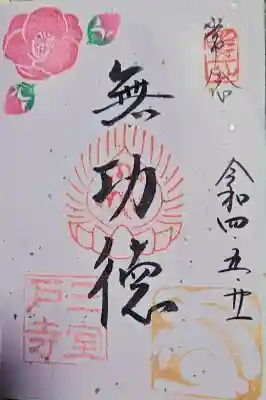 令和四、五、廿
無功徳
三室
戸寺